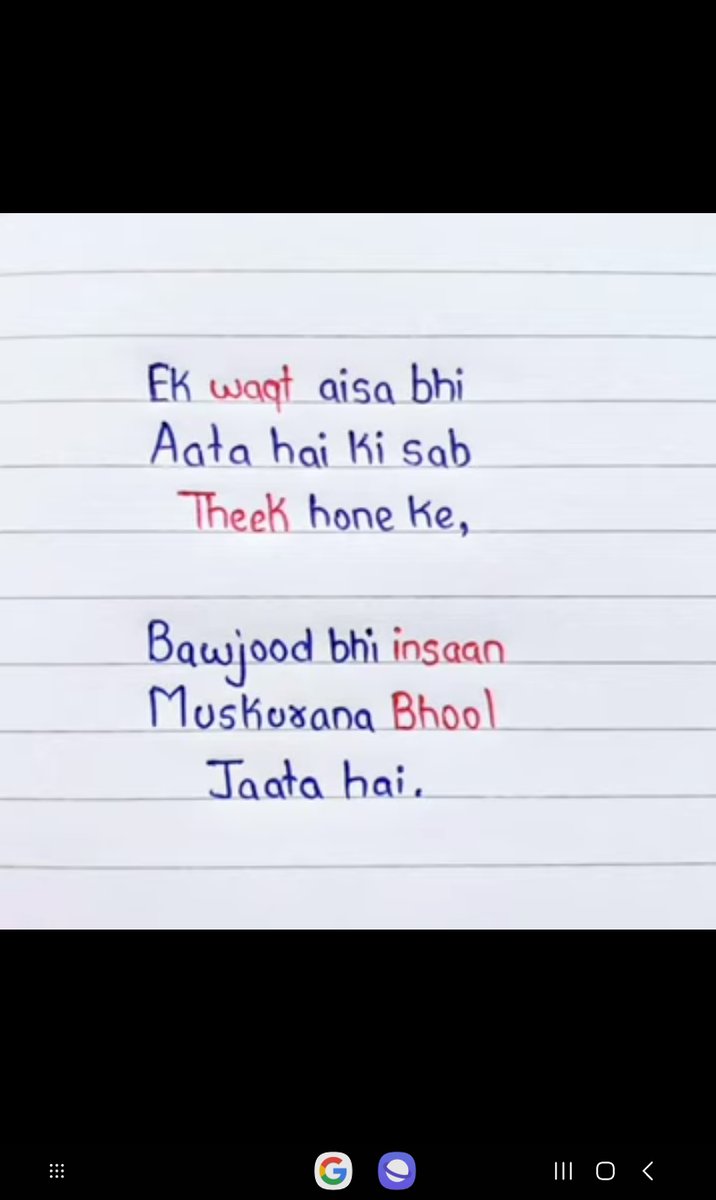 Ek waqt aisa bhi
Aata hai ki sab
Theek hone ke,
Bawjood bhi insaan
Muskurana Bhool
Jaata hai.